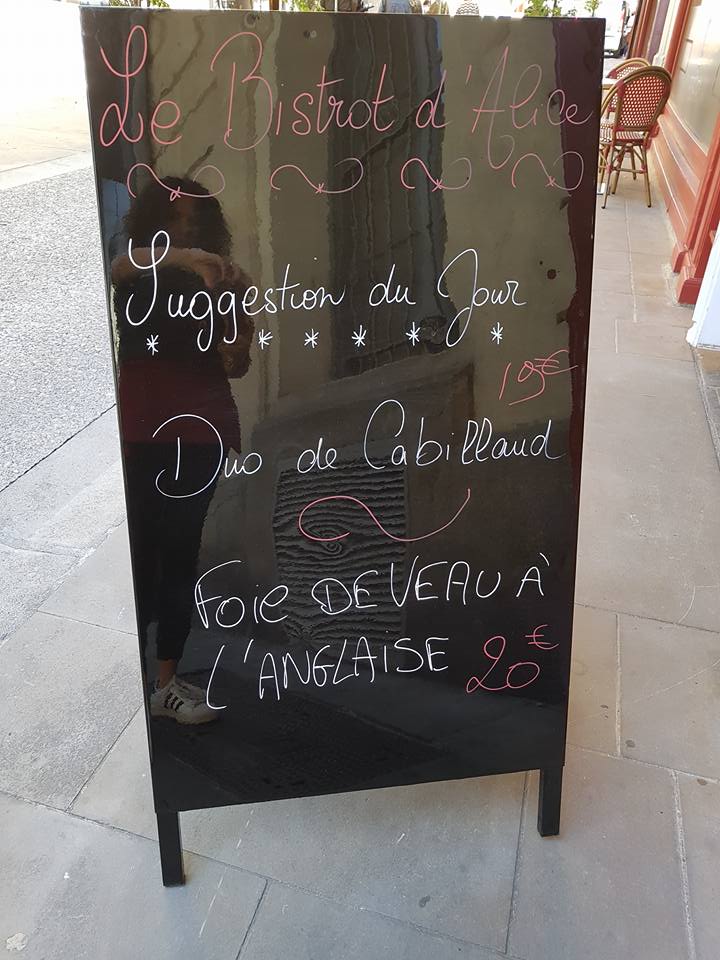 Le Bistrot d'Alice
Suggestion du Jour
* * * * * *
19€
Duo de Cabillaud
Foie DE VEAU À
L'ANGLAISE 20€